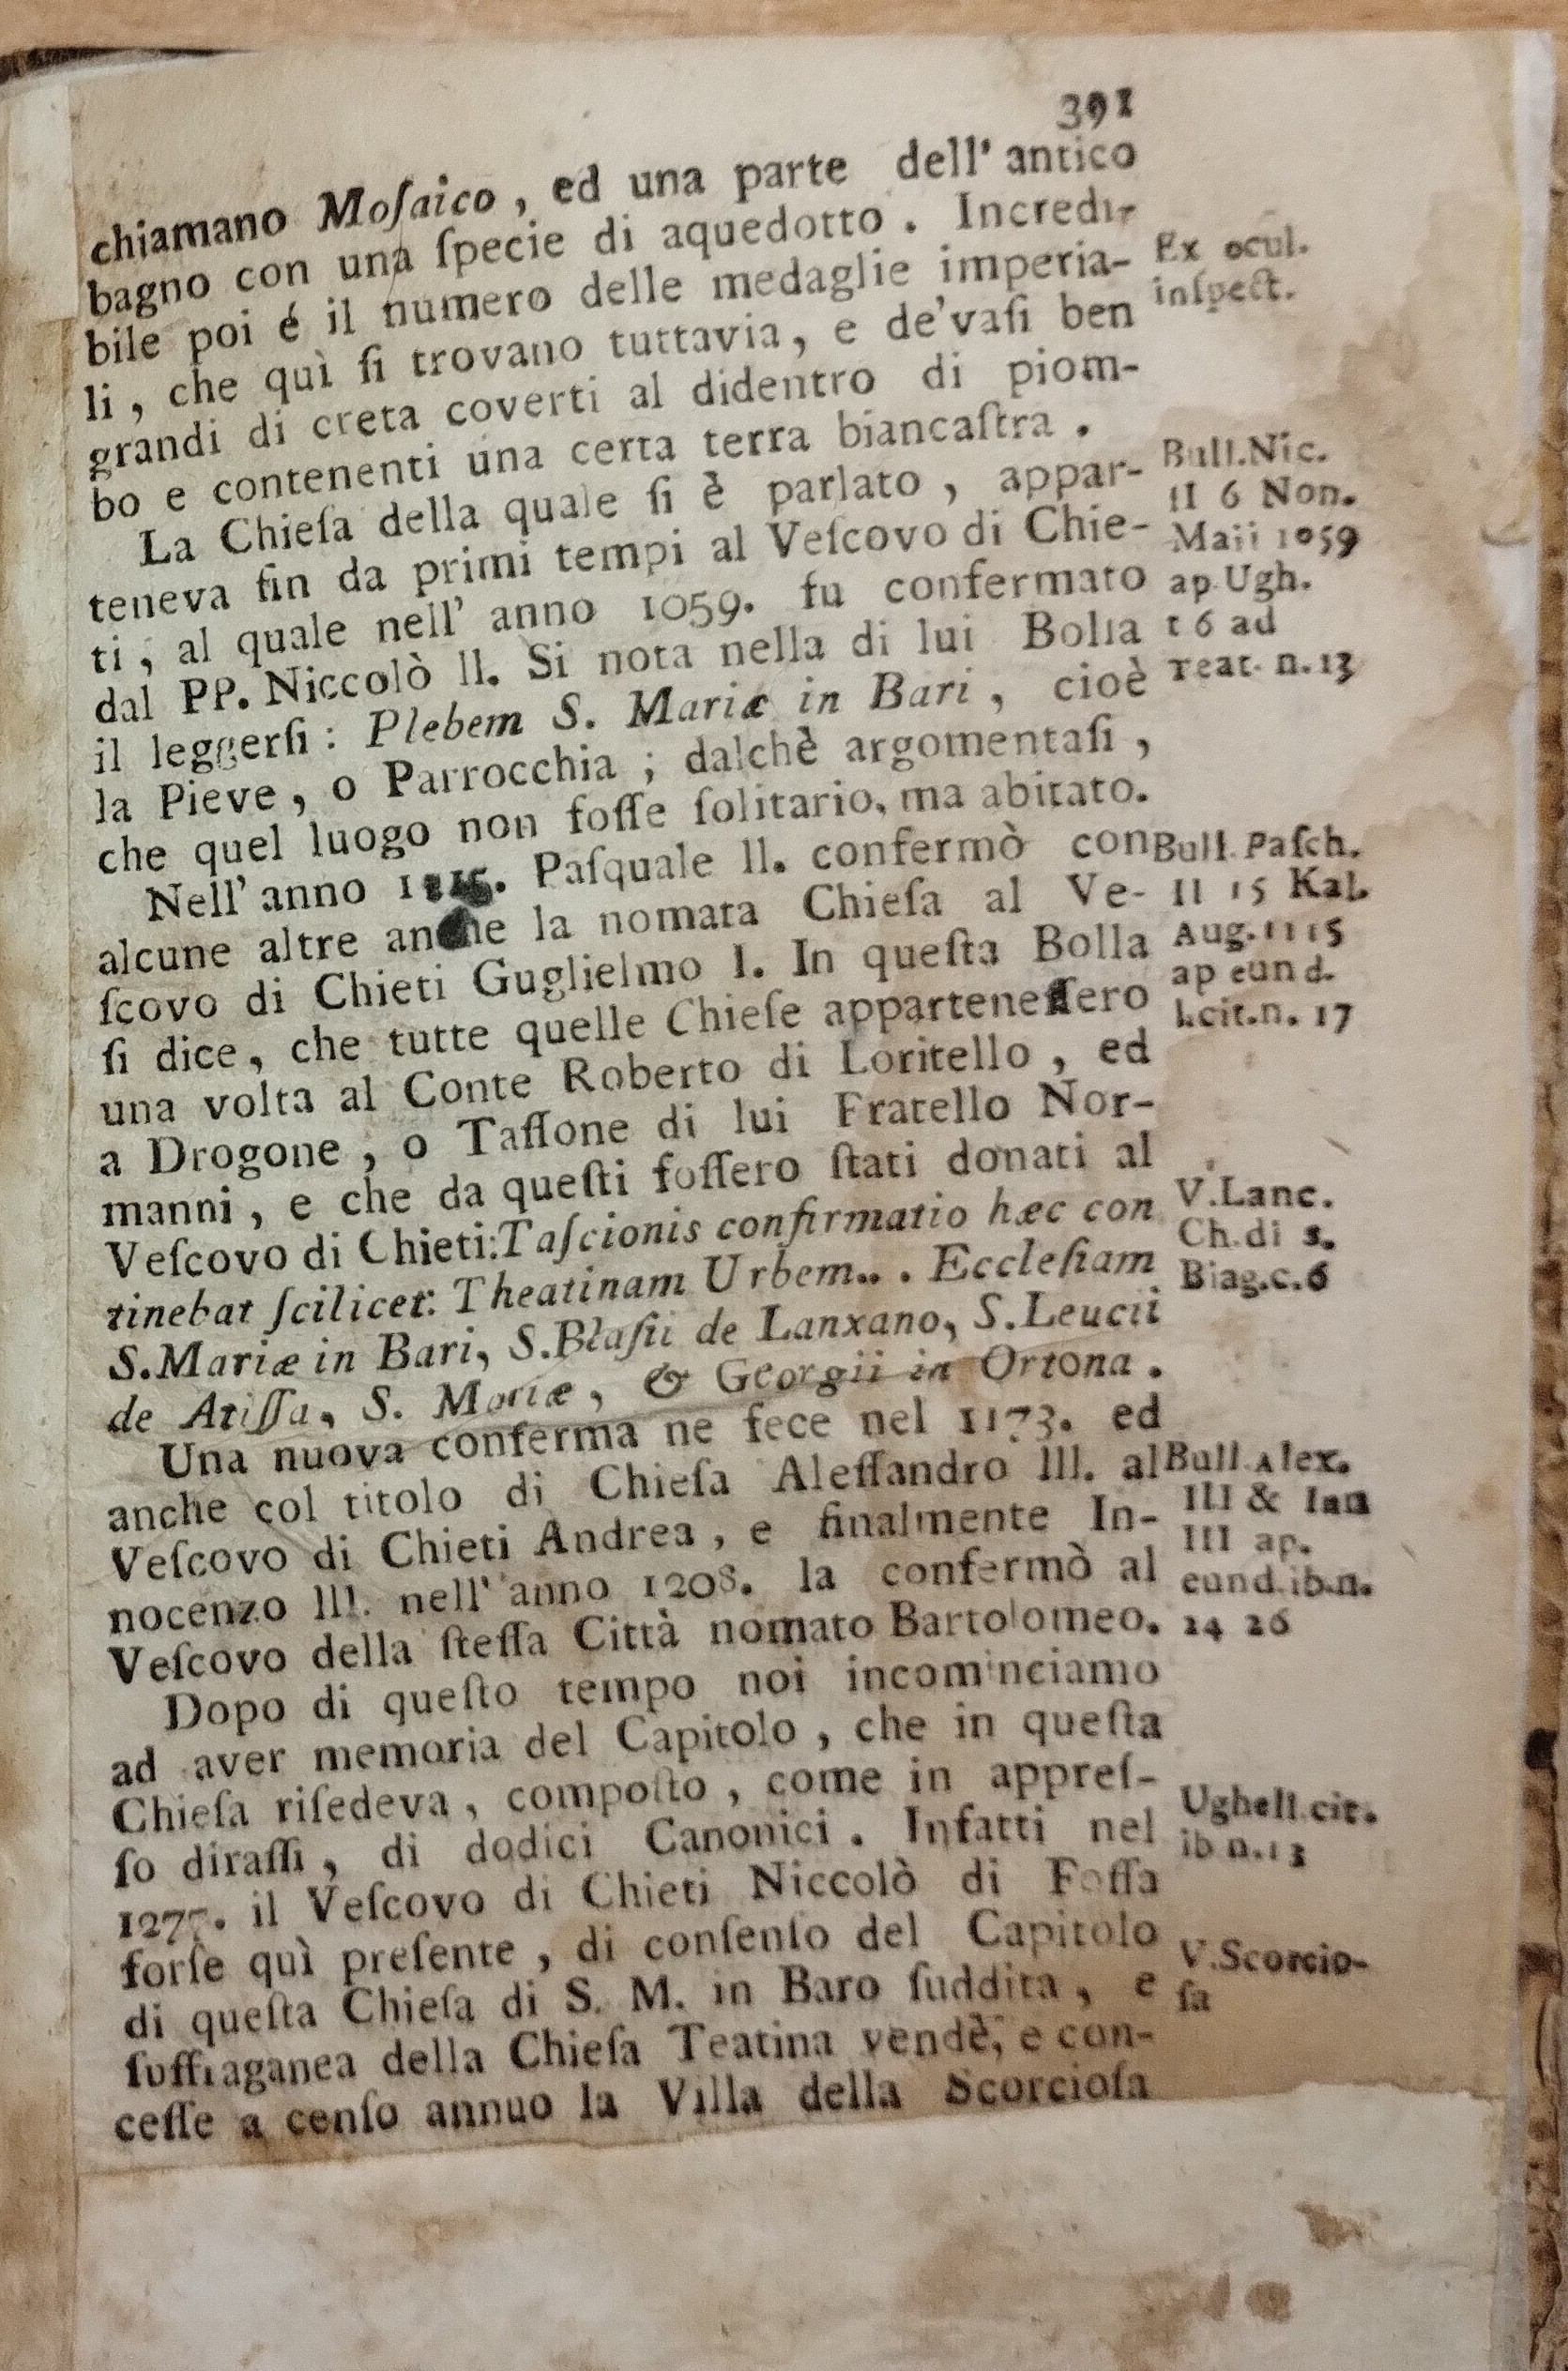 391
chiamano Moſaico, ed una parte dell' antico
bagno con una ſpecie di aquedotto. Incredi-
bile poi é il numero delle medaglie imperia-
li, che quì ſi trovano tuttavia, e de'vaſi ben
grandi di creta coverti al didentro di piom-
bo e contenenti una certa terra biancaſtra.
Ex ocul.
inſpect.
La Chieſa della quale ſi è parlato, appar-
teneva fin da primi tempi al Veſcovo di Chie-
ti, al quale nell' anno 1059. fu confermato
dal PP. Niccolò II. Si nota nella di lui Bolla
il leggerſi: Plebem S. Mariæ in Bari, cioè
la Pieve, o Parrocchia; dalchè argomentaſi,
che quel luogo non foſſe ſolitario, ma abitato.
Bull.Nic.
II 6 Non.
Maii 1059
ap Ugh.
t 6 ad
Teat. n.13
Nell' anno 1115. Paſquale II. confermò con
alcune altre anche la nomata Chieſa al Ve-
ſcovo di Chieti Guglielmo I. In queſta Bolla
ſi dice, che tutte quelle Chieſe apparteneſſero
una volta al Conte Roberto di Loritello, ed
a Drogone, o Taſſone di lui Fratello Nor-
manni, e che da queſti foſſero ſtati donati al
Veſcovo di Chieti: Taſcionis confirmatio hæc con
tinebat ſcilicet: Theatinam Urbem... Eccleſiam
S.Mariæ in Bari, S.Blaſii de Lanxano, S.Leucii
de Atiſſa, S. Mariæ, & Georgii in Ortona.
Bull. Paſch.
II 15 Kal.
Aug. 1115
ap eund.
l.cit.n. 17
V.Lanc.
Ch.di s.
Biag.c.6
Una nuova conferma ne fece nel 1173. ed
anche col titolo di Chieſa Aleſſandro III. al
Veſcovo di Chieti Andrea, e finalmente In-
nocenzo III. nell' anno 1208. la confermò al
Veſcovo della ſteſſa Città nomato Bartolomeo.
Bull. Alex.
III & Inn
III ap.
eund.ib.n.
24 26
Dopo di queſto tempo noi incominciamo
ad aver memoria del Capitolo, che in queſta
Chieſa riſedeva, compoſto, come in appreſ-
ſo diraſſi, di dodici Canonici. Infatti nel
1277. il Veſcovo di Chieti Niccolò di Foſſa
forſe quì preſente, di conſenſo del Capitolo
di queſta Chieſa di S. M. in Baro ſuddita, e
ſuffraganea della Chieſa Teatina vendè, e con-
ceſſe a cenſo annuo la Villa della Scorcioſa
Ughell.cit.
ib n.13
V.Scorcio-
ſa